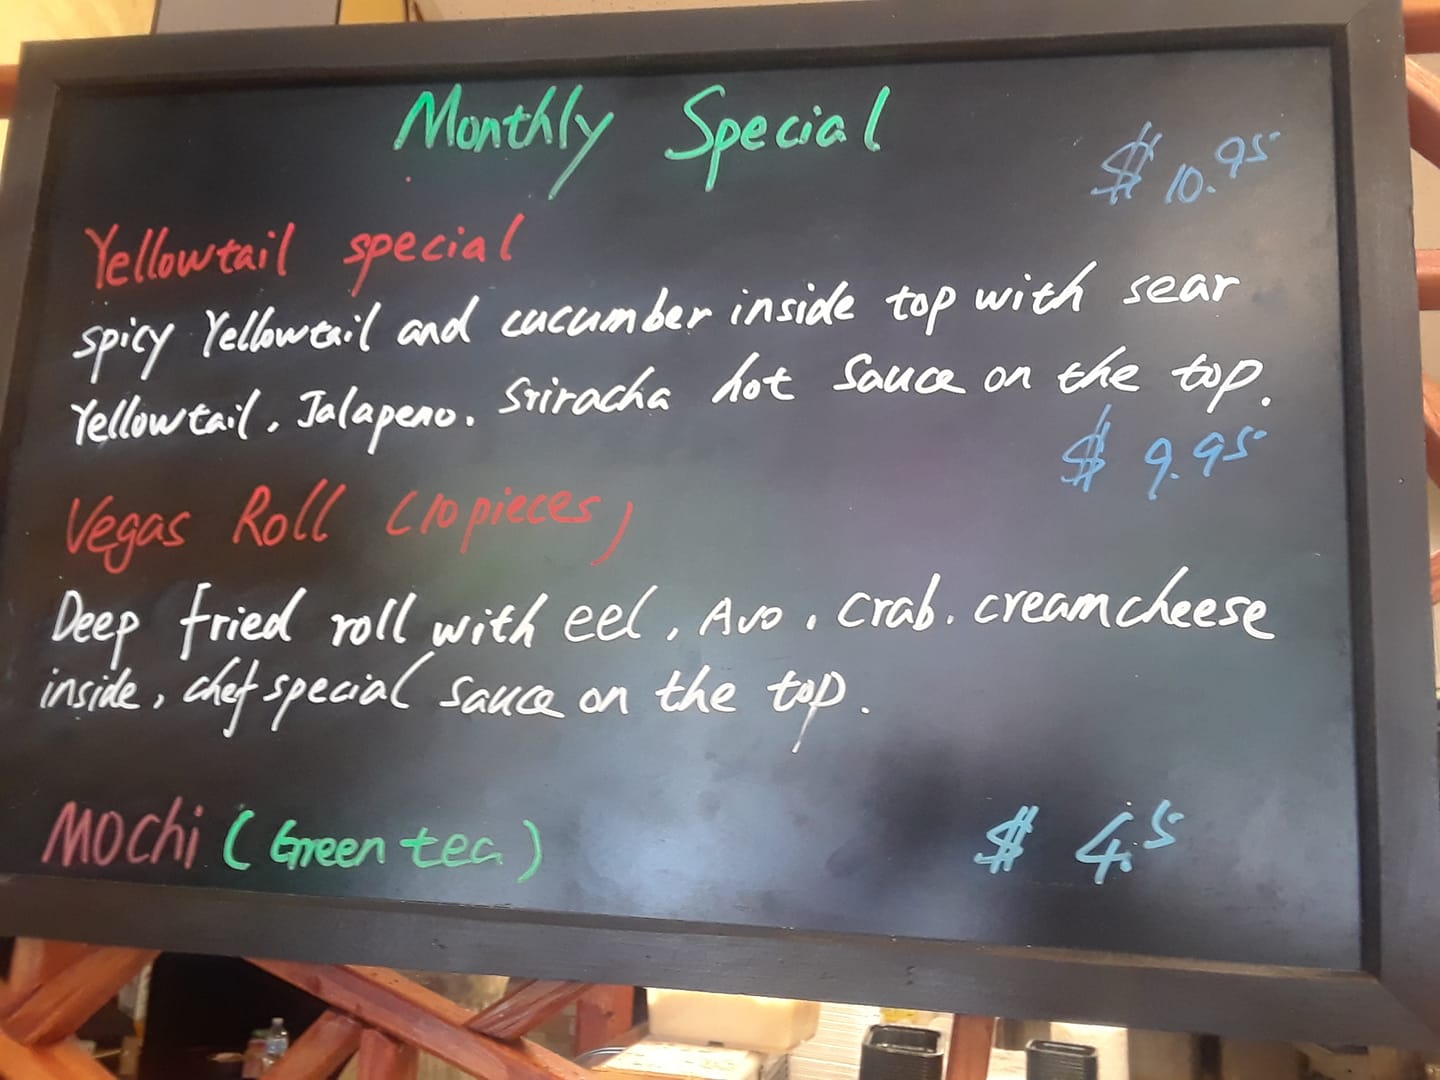 Monthly Special
$10.95
Yellowtail special
spicy Yellowtail and cucumber inside top with sear
Yellowtail, Jalapeno. Sriracha hot sauce on the top.
$9.95
Vegas Roll (10 pieces)
Deep fried roll with eel, Avo, Crab. creamcheese
inside, chef special sauce on the top.
Mochi (Green tea) $4.5